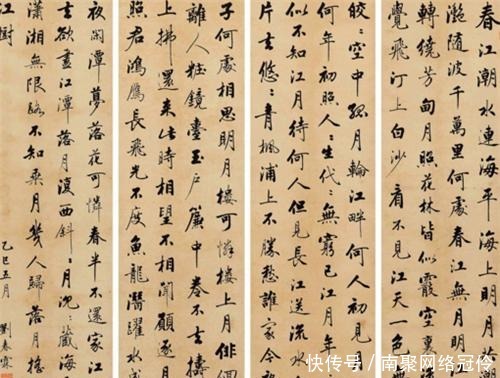 春江潮水連海平海上明月
灩隨波千萬里何處春江無
轉繞芳甸月照花林皆似霰空裏
覺飛汀上白沙看不見江天一色
皎〻空中孤月輪江畔何人初見
何年初照人〻生代〻無窮已江月
似不知江月待何人但見長江送流
片去悠〻青楓浦上不勝愁誰家今
子何處相思明月樓可憐樓上月俳佪
離人粧鏡臺玉戶簾中卷不去擣
上拂還來此時相望不相聞願逐
照君鴻鴈長飛光不度魚龍潛躍水
夜閑潭夢落花可憐春半不還家江
去欲盡江潭落月復西斜〻月沈〻藏海
瀟湘無限路不知乘月幾人歸落月搖
江樹
乙巳五月 劉春霖
快传号/南聚网络冠伶